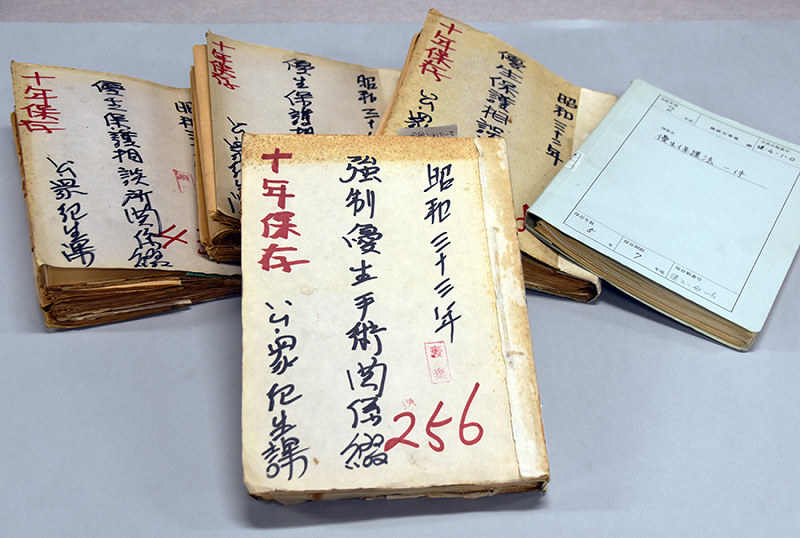 昭和三十三年
強制優生手術関係綴
十年保存
公衆衛生課
256
昭和
優生保護相談所関係綴
十年保存
公衆衛生課
昭和三十
優生保護相
十年保存
公
昭和三十二年
優生保護相談
十年保存
公衆
優生保護法一件
保存年数
5年